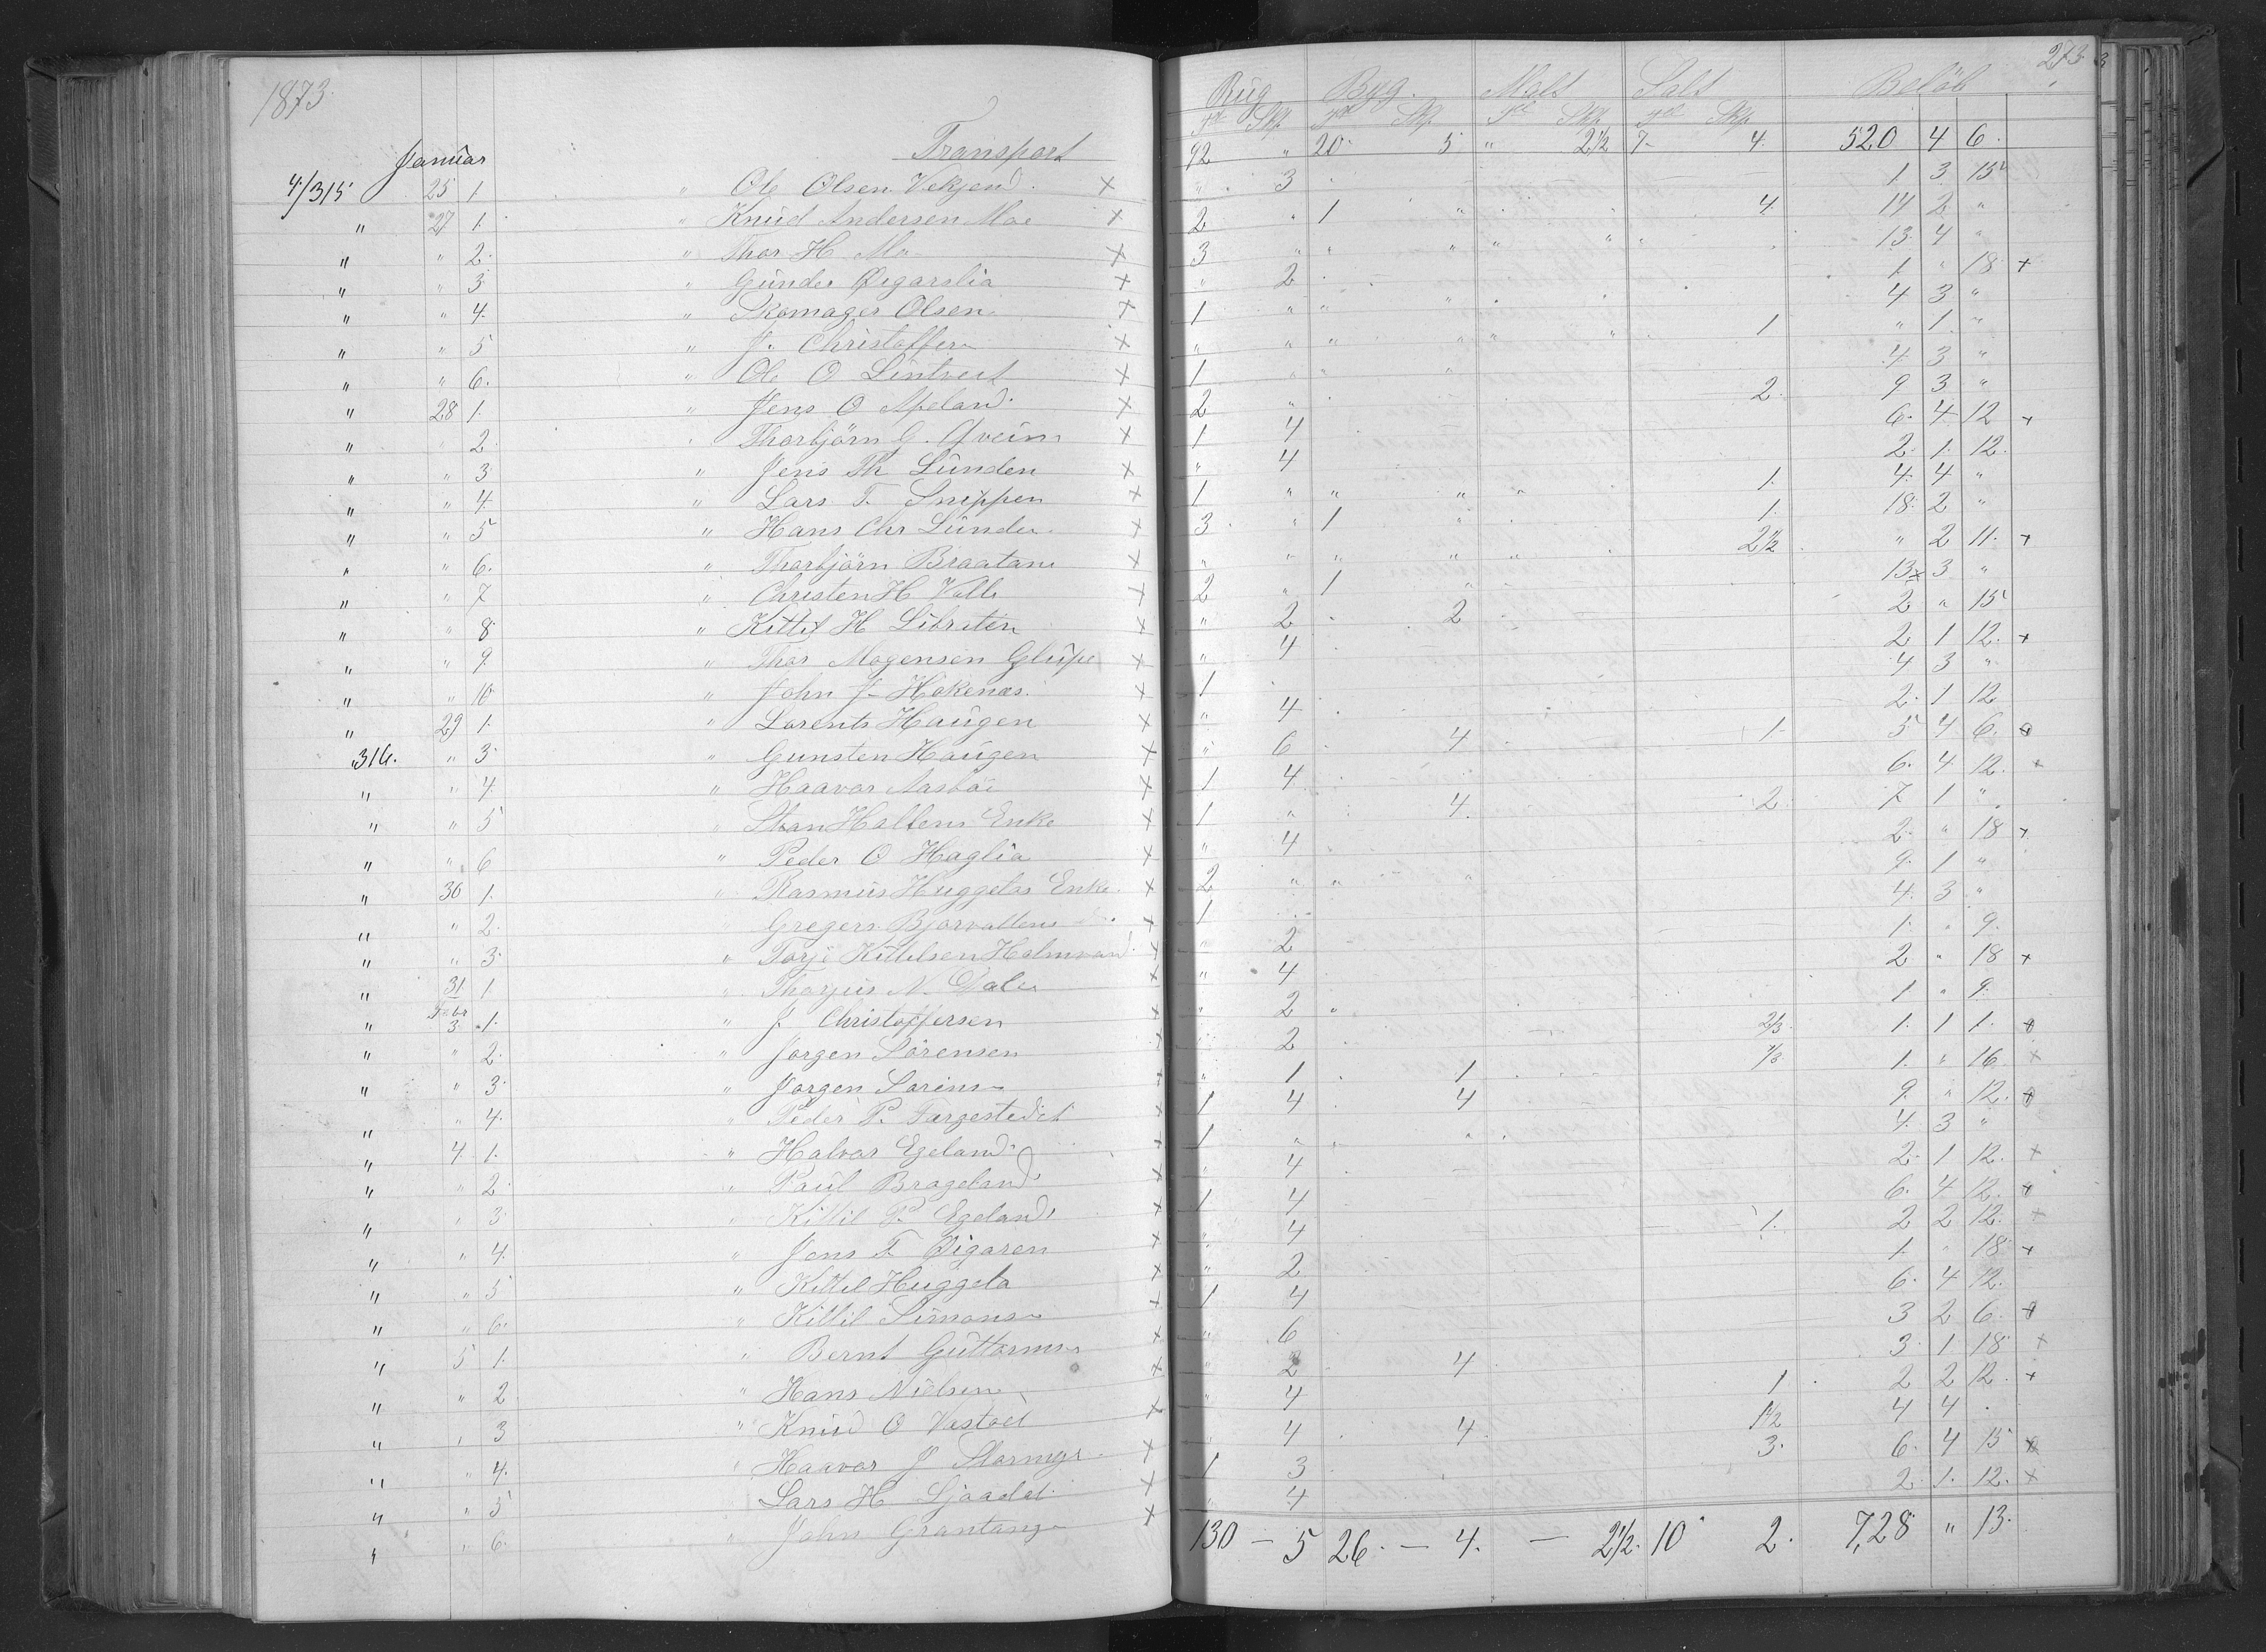 1873.
Januar
Transport
4/315 25 1. " Ole Olsen Vekjend. ×
" 27 1. " Knud Andersen Moe ×
" " 2. " Thor H. Mo ×
" " 3. " Gunder Øigarslia ×
" " 4. " Skomager Olsen ×
" " 5 " J. Christoffers ×
" " 6. " Ole O ×
" 28 1. " Jens O Apeland ×
" " 2 " Thorbjörn G. ×
" " 3 " Jens Th Lunden ×
" " 4. " Lars T. Snippen ×
" " 5 " Hans Chr Lunde ×
" " 6. " Thorbjörn Braatane ×
" " 7 " Christen H Valle ×
" " 8. " Kittil H ×
" " 9. " Thor Mogensen Glupe ×
" " 10. " John J. Hokenæs ×
" 29 1. " Lorents Haugen ×
"316. " 3. " Gunsten Haugen ×
" " 4. " Haavor Aasböe ×
" " 5 " Hallens Enke ×
" " 6 " Peder O Haglia ×
" 30 1. " Rasmus Huggetos Enke. ×
" " 2. " Gregers ×
" " 3. " Torje Kittilsen ×
" 31 1 " Thorjus N. Dale ×
" Febr 3. 1. " J. Christoffersen ×
" " 2. " Jorgen Sörensen ×
" " 3. " Jorgen Sorens ×
" " 4. " Peder P. ×
" 4. 1. " Halvor Egeland ×
" " 2. " Paul Brageland ×
" " 3. " Kittil P. Egeland ×
" " 4. " Jens T. Øigaren ×
" " 5 " Kittil Huggeto ×
" " 6. " Kittil Simons ×
" 5 1. " Bernt Guttorms ×
" " 2 " Hans Nielsen ×
" " 3 " Knud O ×
" " 4. " Haavor J ×
" " 5 Lars H ×
" " 6. " John ×
273.
Rug Byg. Malt Salt Beløb
Td Skp Td Skp Td Skp Td Skp
92 " 20. 5 " 2 1/2 7- 4. 520 4 6.
" 3 1. 3 15
2 " 1 " 4. 14 2 "
3 " " " " " " 13. 4 "
" 2 1. " 18 +
1 " " " 4 3 "
" " " " " " 1 " 1. "
1 " " " 4. 3 "
2 " 2. 9 3 "
1 4 6. 4 12 +
" 4 2. 1. 12.
1 " " " " 1. 4. 4. "
3. " 1 " 1. 18. 2 "
" " " " " 2 1/2 " 2 11. +
2 " 1 " 13. 3 "
" 2 2 2 " 15
" 4 2 1 12. +
1 4 3 "
" 4 2. 1 12
" 6 4 1- 5 4 6. +
1 4 6. 4 12. +
1 " 4. 2. 7 1 "
" 4 2. " 18 +
2 " " " 9. 1 "
1 4. 3 "
" 2 1. " 9.
" 4 2 " 18 +
" 2 " 1 " 9.
2 2/3. 1. 1 1. +
" 1 1 1/3. 1. " 16 +
1 4 4 9. " 12. +
1 " " " 4. 3 "
" 4 2. 1 12. +
1 4 6. 4 12. +
" 4 1. 2 2 12. +
" 2 1. " 18. +
1 4 6. 4 12.
" 6 3 2 6. +
" 2 4 3. 1. 18 +
" 4 1 2 2 12. +
" 4 4. 1 1/2 4 4
1 3 3. 6. 4 15 +
" 4 2. 1. 12. +
130 - 5 26. - 4. - 2 1/2. 10 2. 728 " 13.